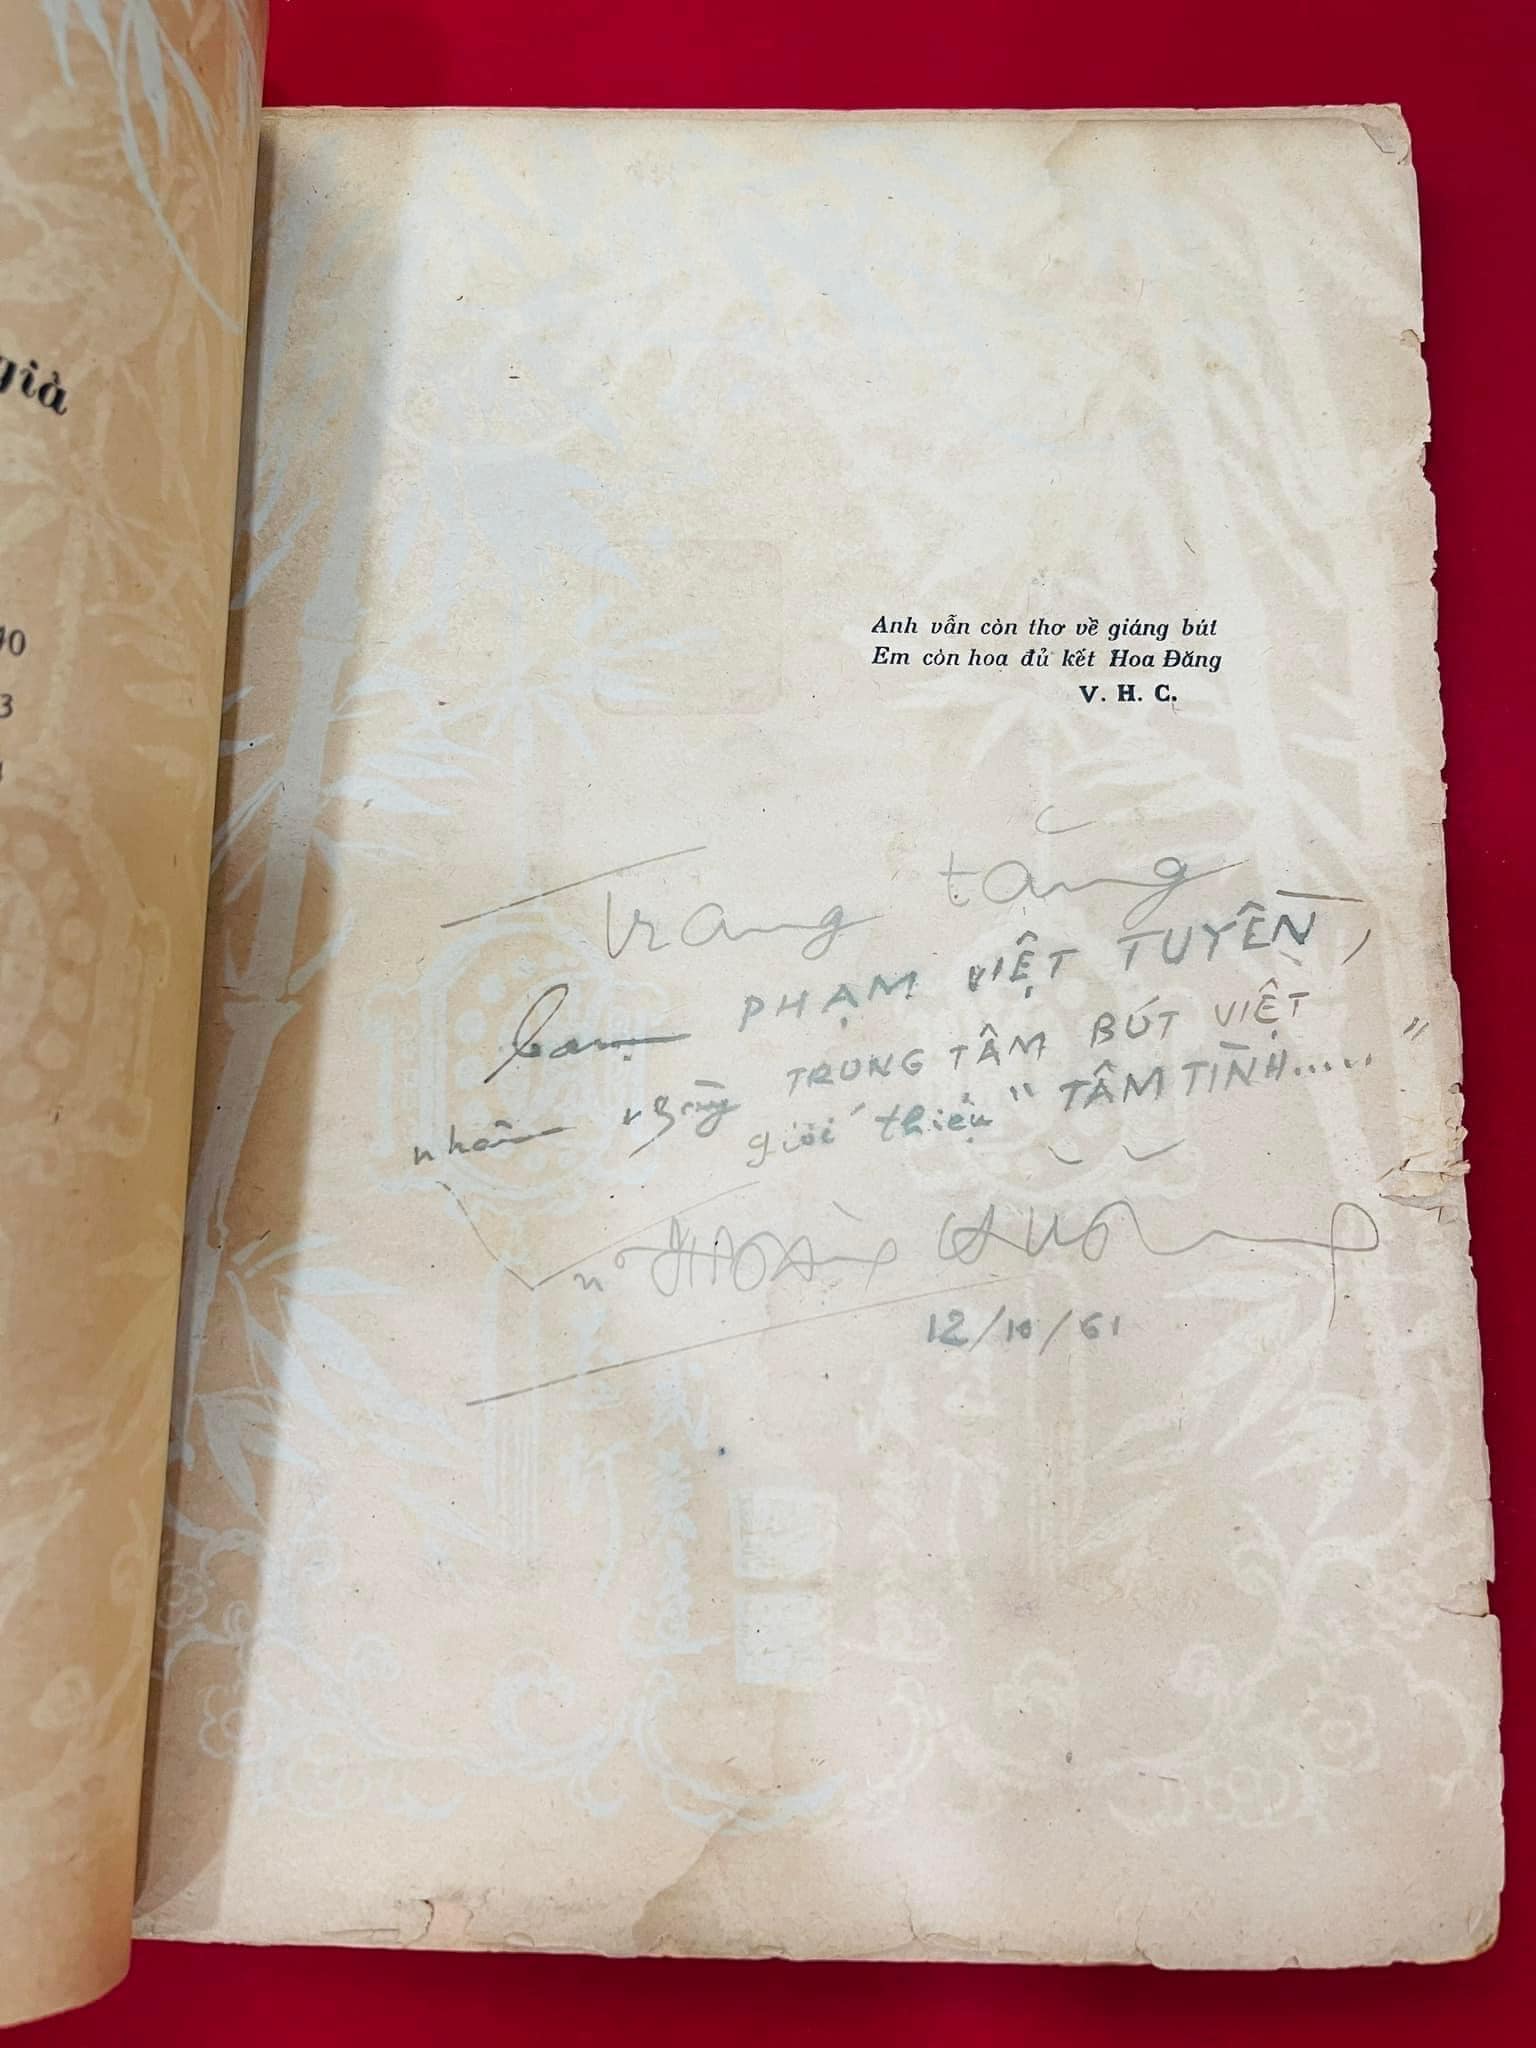 già
40
3
Anh vẫn còn thơ về giáng bút
Em còn hoa đủ kết Hoa Đăng
V. H. C.
Trang tặng
bạn PHẠM VIỆT TUYỀN,
nhân ngày TRUNG TÂM BÚT VIỆT
giới thiệu " TÂM TÌNH..... "
12/10/61